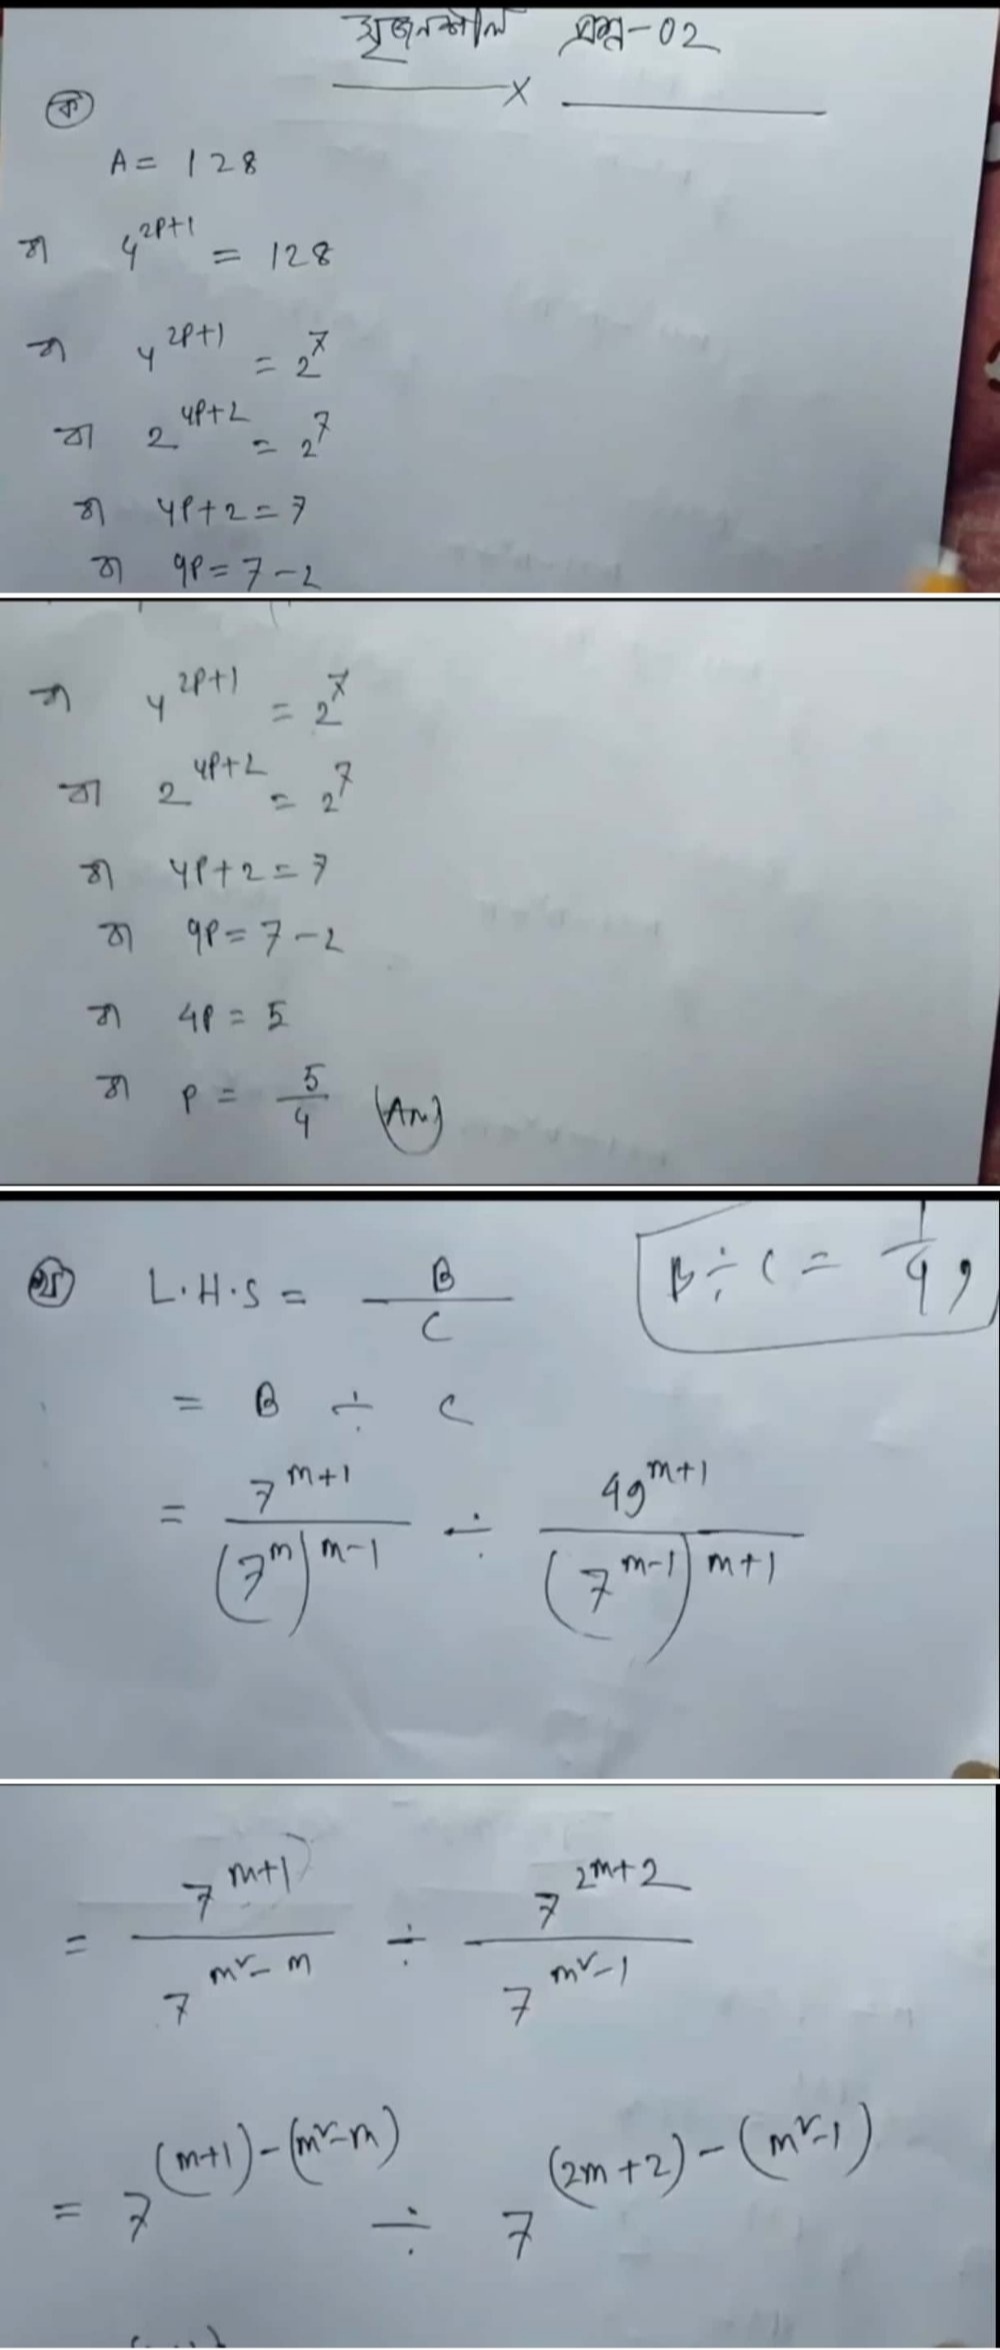 সৃজনশীল প্রশ্ন-02
x
ক
A = 128
বা 4^{2P+1} = 128
বা 4^{2P+1} = 2^7
বা 2^{4P+2} = 2^7
বা 4P+2 = 7
বা 4P = 7-2
বা 4^{2P+1} = 2^7
বা 2^{4P+2} = 2^7
বা 4P+2 = 7
বা 4P = 7-2
বা 4P = 5
বা P = 5/4 (Ans)
খ L.H.S = B/C
B ÷ C = 1/49
= B ÷ C
= 7^{m+1}/(7^m)^{m-1} ÷ 49^{m+1}/(7^{m-1})^{m+1}
= 7^{m+1}/7^{m²-m} ÷ 7^{2m+2}/7^{m²-1}
= 7^{(m+1)-(m²-m)} ÷ 7^{(2m+2)-(m²-1)}